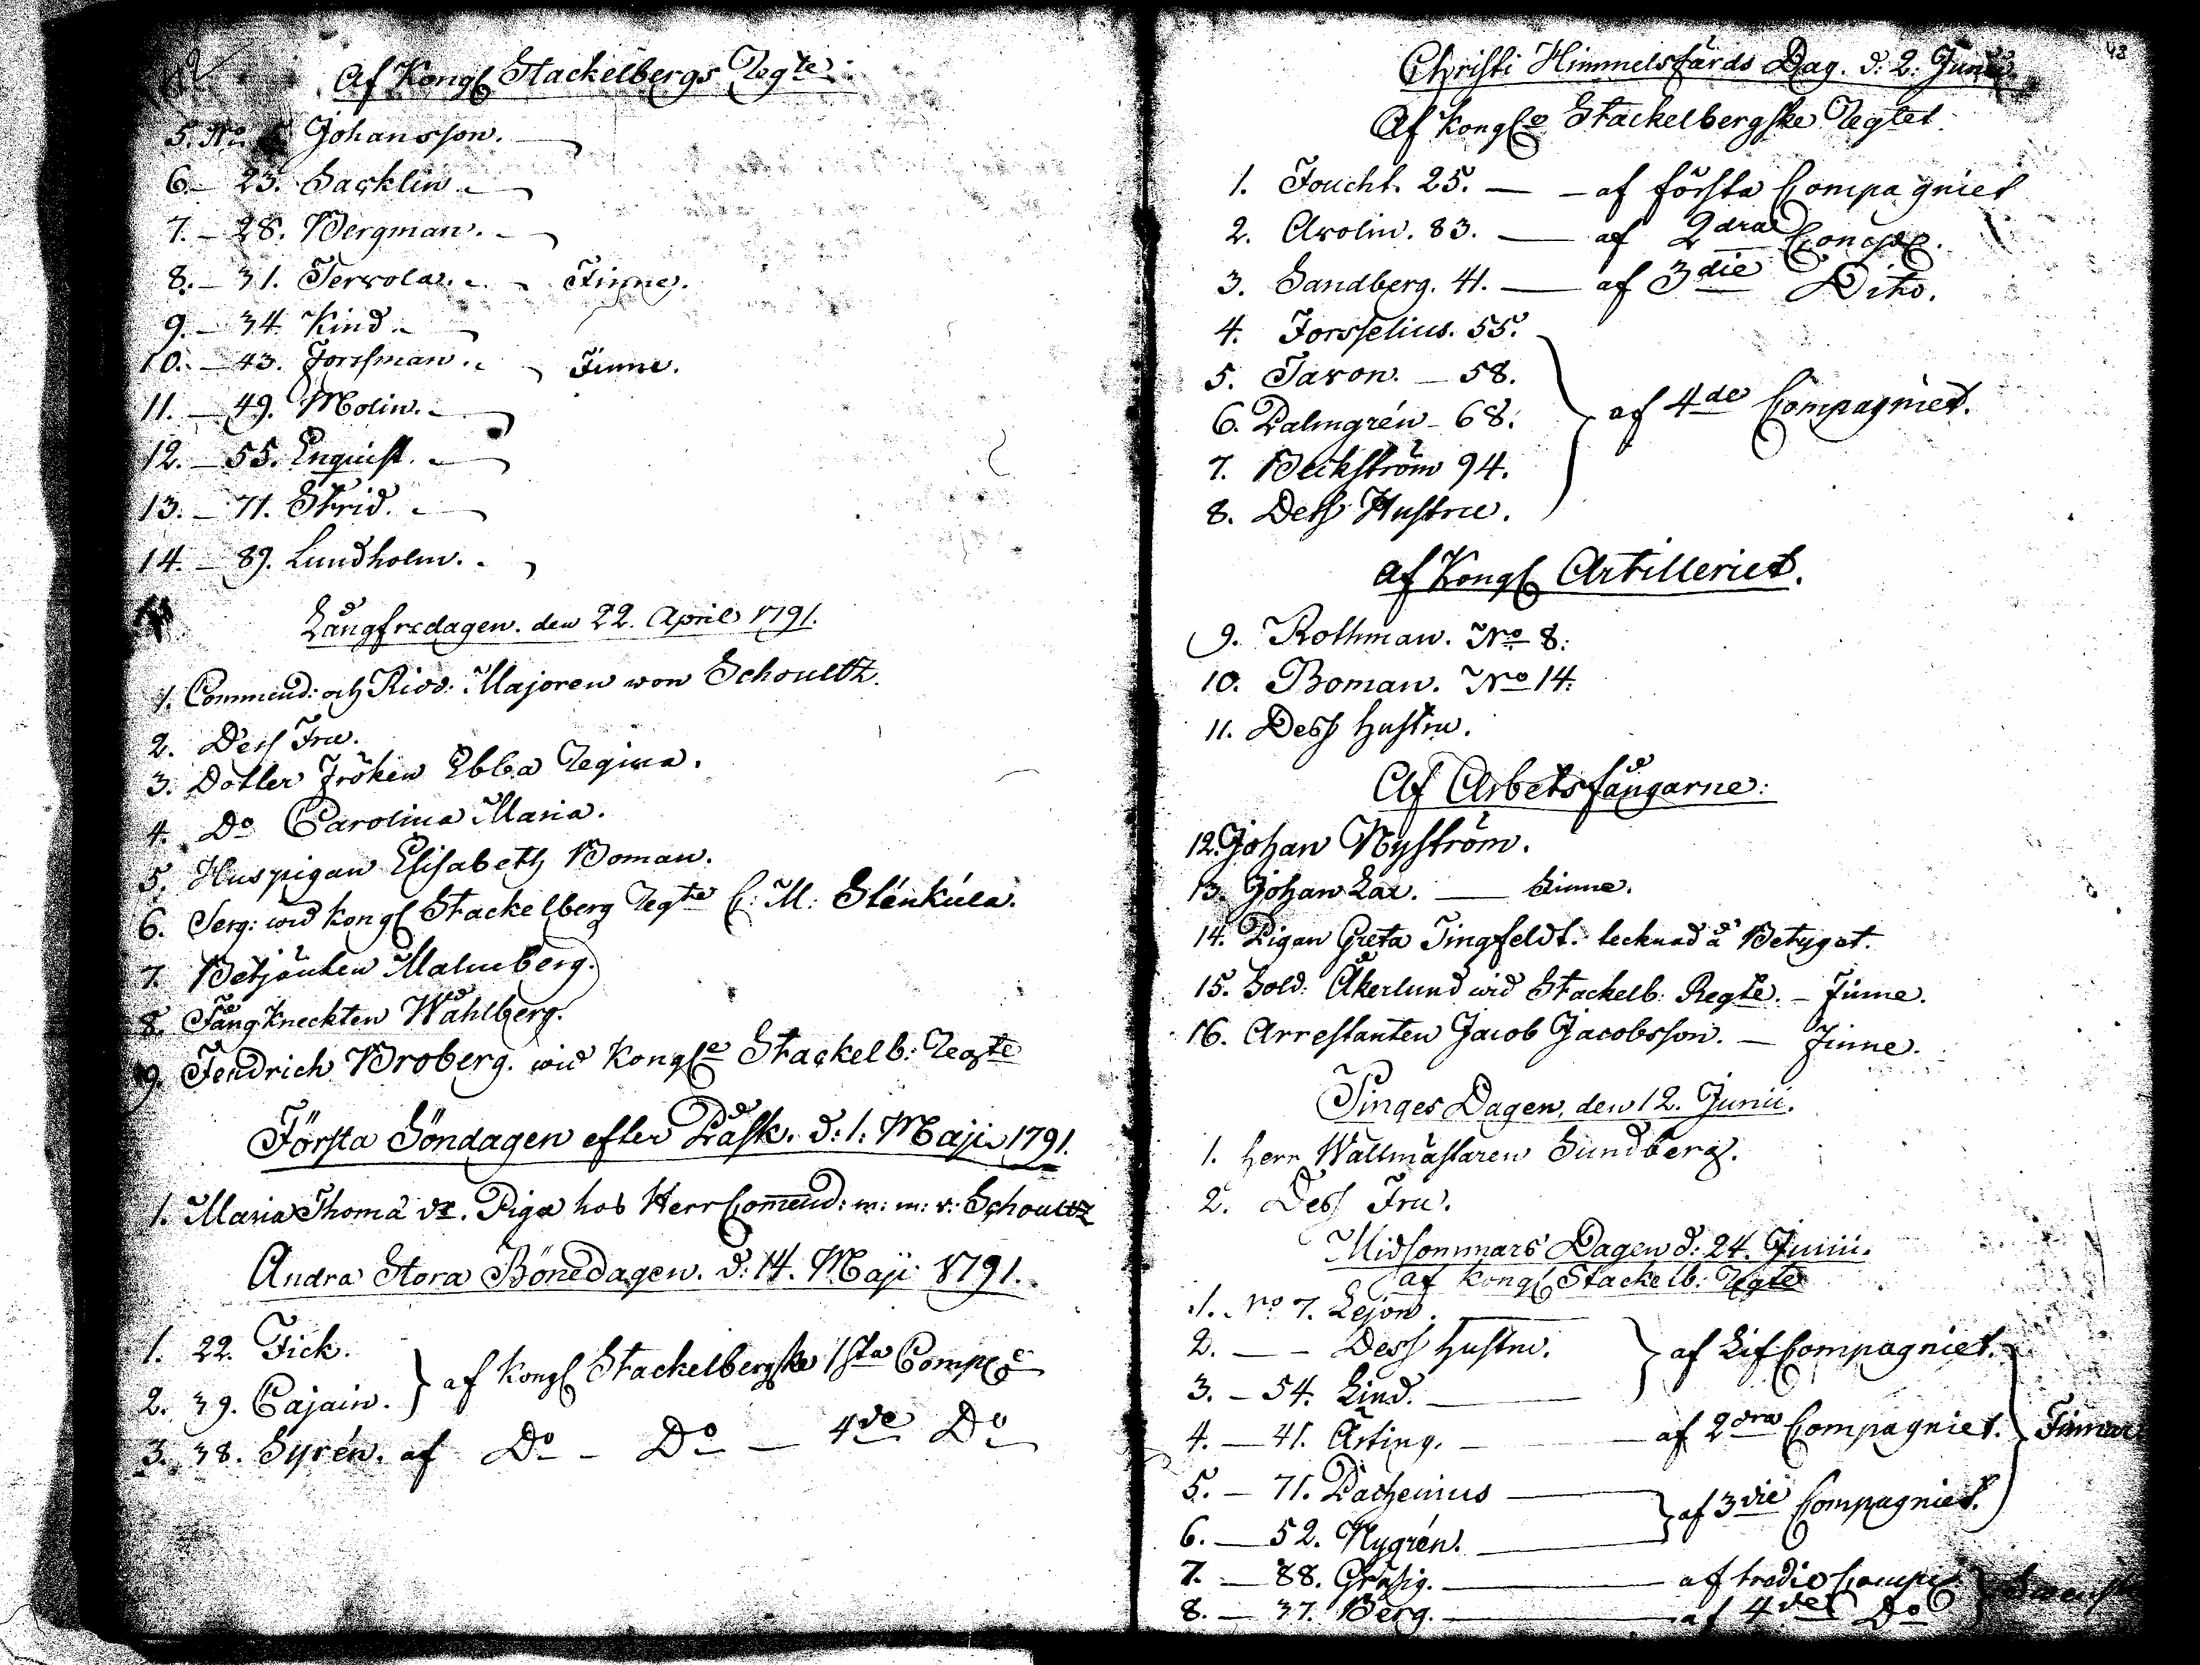 42
Af Kongl Stackelbergs Regte:
5. No 5 Johansson.
6. – 23. Sacklin.
7. – 28. Bergman.
8. – 31. Tervola. Finne.
9. – 34. Kind.
10. – 43. Forssman. Finne.
11. – 49. Molin.
12. – 55. Enquist.
13. – 71. Strid.
14. – 89. Lundholm.
Långfredagen. den 22. April 1791.
1. Commend: och Ridd: Majoren von Schoultz.
2. Dess Fru.
3. Dotter Fröken Ebba Regina.
4. Do Carolina Maria.
5. Huspigan Elisabeth Boman.
6. Serg: wid kongl Stackelberg Regte C: M: Stenkula.
7. Betjänten Malmberg.
8. Fångkneckten Wåhlberg.
9. Fendrich Broberg. wid Kongle Stackelb: Regte
Första Söndagen efter Påsk. d: 1. Maji 1791.
1. Maria Thomä dr. Piga hos Herr Commend: m: m: v: Schoultz
Andra Stora Bönedagen. d: 14. Maji 1791.
1. 22. Fick.
2. 39. Cajain. } af Kongl Stackelbergske 1sta Compe
3. 38. Syrén. af Do – Do – 4de Do
43
Christi Himmelsfärds Dag. d: 2: Junii.
Af Kongle Stackelbergske Regtet.
1. Foucht. 25. — – af första Compagniet
2. Avolin. 83. — af 2dra Comp.
3. Sandberg. 41. — af 3die Dito.
4. Forsselius. 55.
5. Tavon. – 58.
6. Palmgrén – 68. } af 4de Compagniet.
7. Beckström 94.
8. Dess Hustru.
af Kongl Artilleriet.
9. Rothman. No 8.
10. Boman. No 14.
11. Dess hustru.
Af Arbetsfångarne:
12. Johan Nyström.
13. Johan Lax. — Finne.
14. Pigan Greta Tingfeldt. tecknad å Betyget.
15. Sold: Åkerlund wid Stackelb: Regte. – Finne.
16. Arrestanten Jacob Jacobsson. — Finne.
Pinges Dagen, den 12. Junii.
1. Herr Wallmästaren Sundberg.
2. Dess Fru.
Midsommars Dagen d: 24. Junii.
af Kongl Stackelb: Regte
1. No 7. Lejon.
2. — – Dess hustru. } af Lif Compagniet.
3. – 54. Lind.
4. — 41. Ärting. — af 2dra Compagniet. } Finnar
5. – 71. Pacheinius
6. — 52. Nygrén. } af 3die Compagniet.
7. — 88. Gräsig. — af tredie Compe
8. — 37. Berg. — af 4de Do